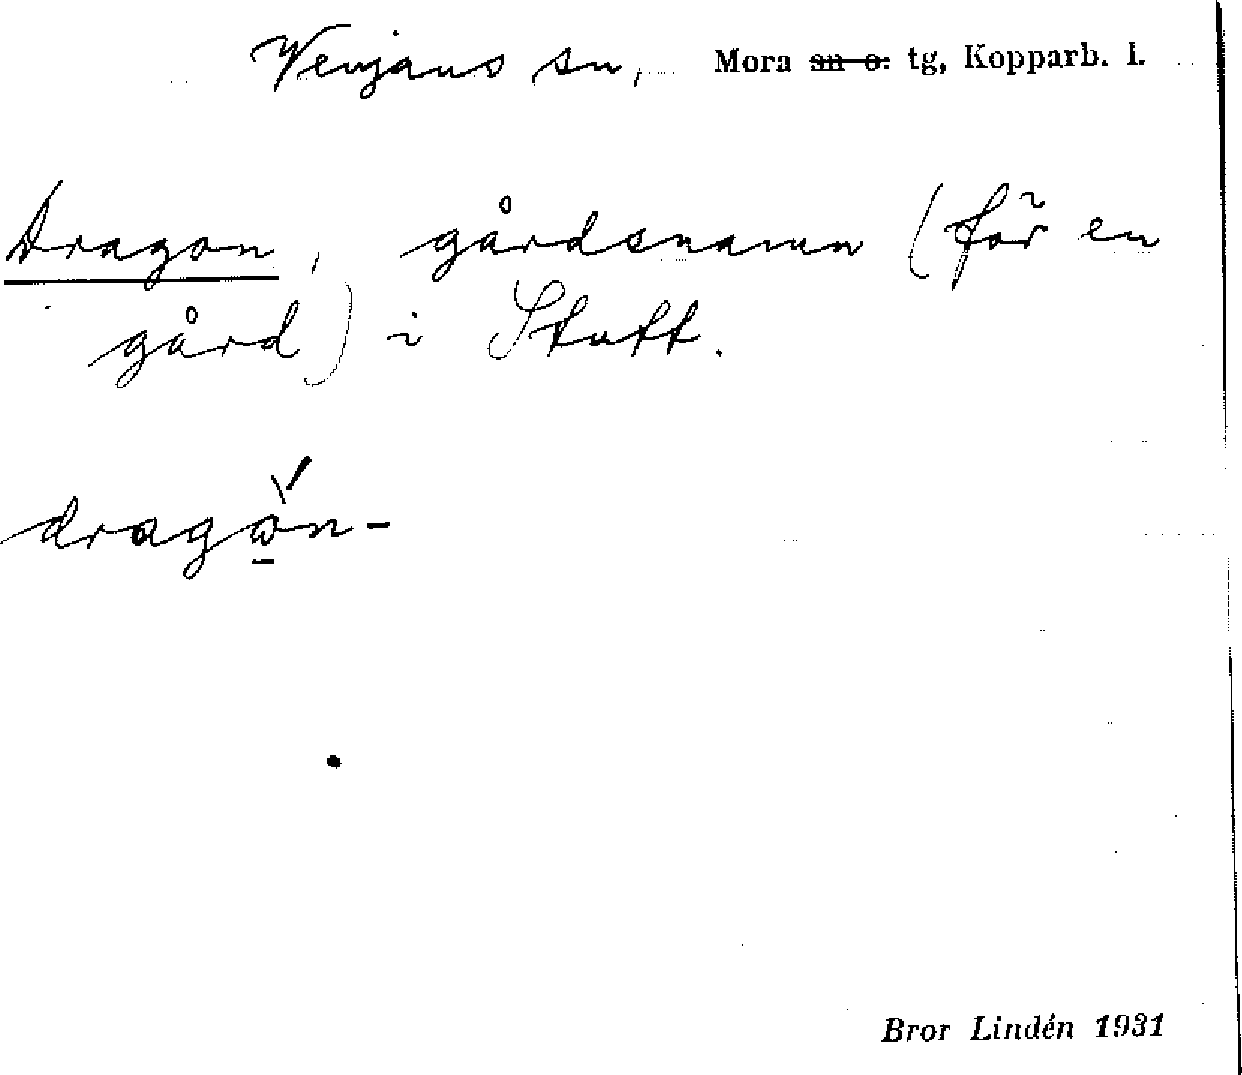 Venjans sn, Mora sn o. tg, Kopparb. l.
Dragon, gårdsnamn (för en
gård) i Stutt.
dragǫ̌n-
Bror Lindén 1931